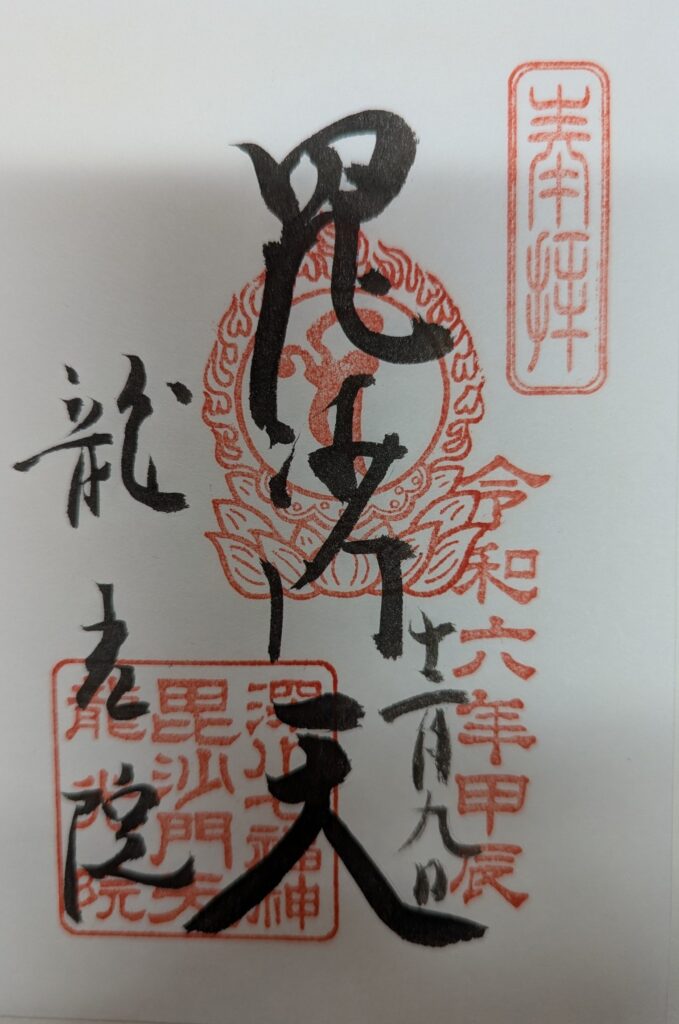 奉拝
令和六年甲辰
十一月九日
毘沙門天
龍光院
深川七福神
毘沙門天
龍光院